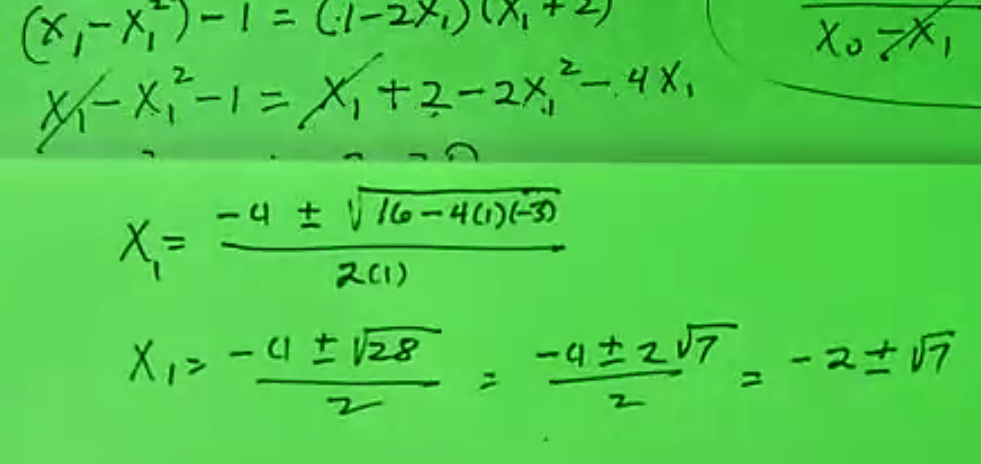 (x₁-x₁²)-1 = (1-2x₁)(x₁+2)
x₀-x₁
x₁-x₁²-1 = x₁+2-2x₁²-4x₁
x₁= (-4 ± √(16-4(1)(-3)))/(2(1))
x₁= (-4 ± √28)/2 = (-4 ± 2√7)/2 = -2 ± √7